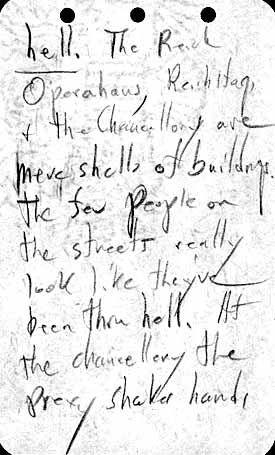 hell. The Reich
Operahaus, Reichstag,
+ the Chancellory are
mere shells of buildings.
The few people on
the streets really
look like they've
been thru hell. At
the chancellery the
Prexy shakes hands